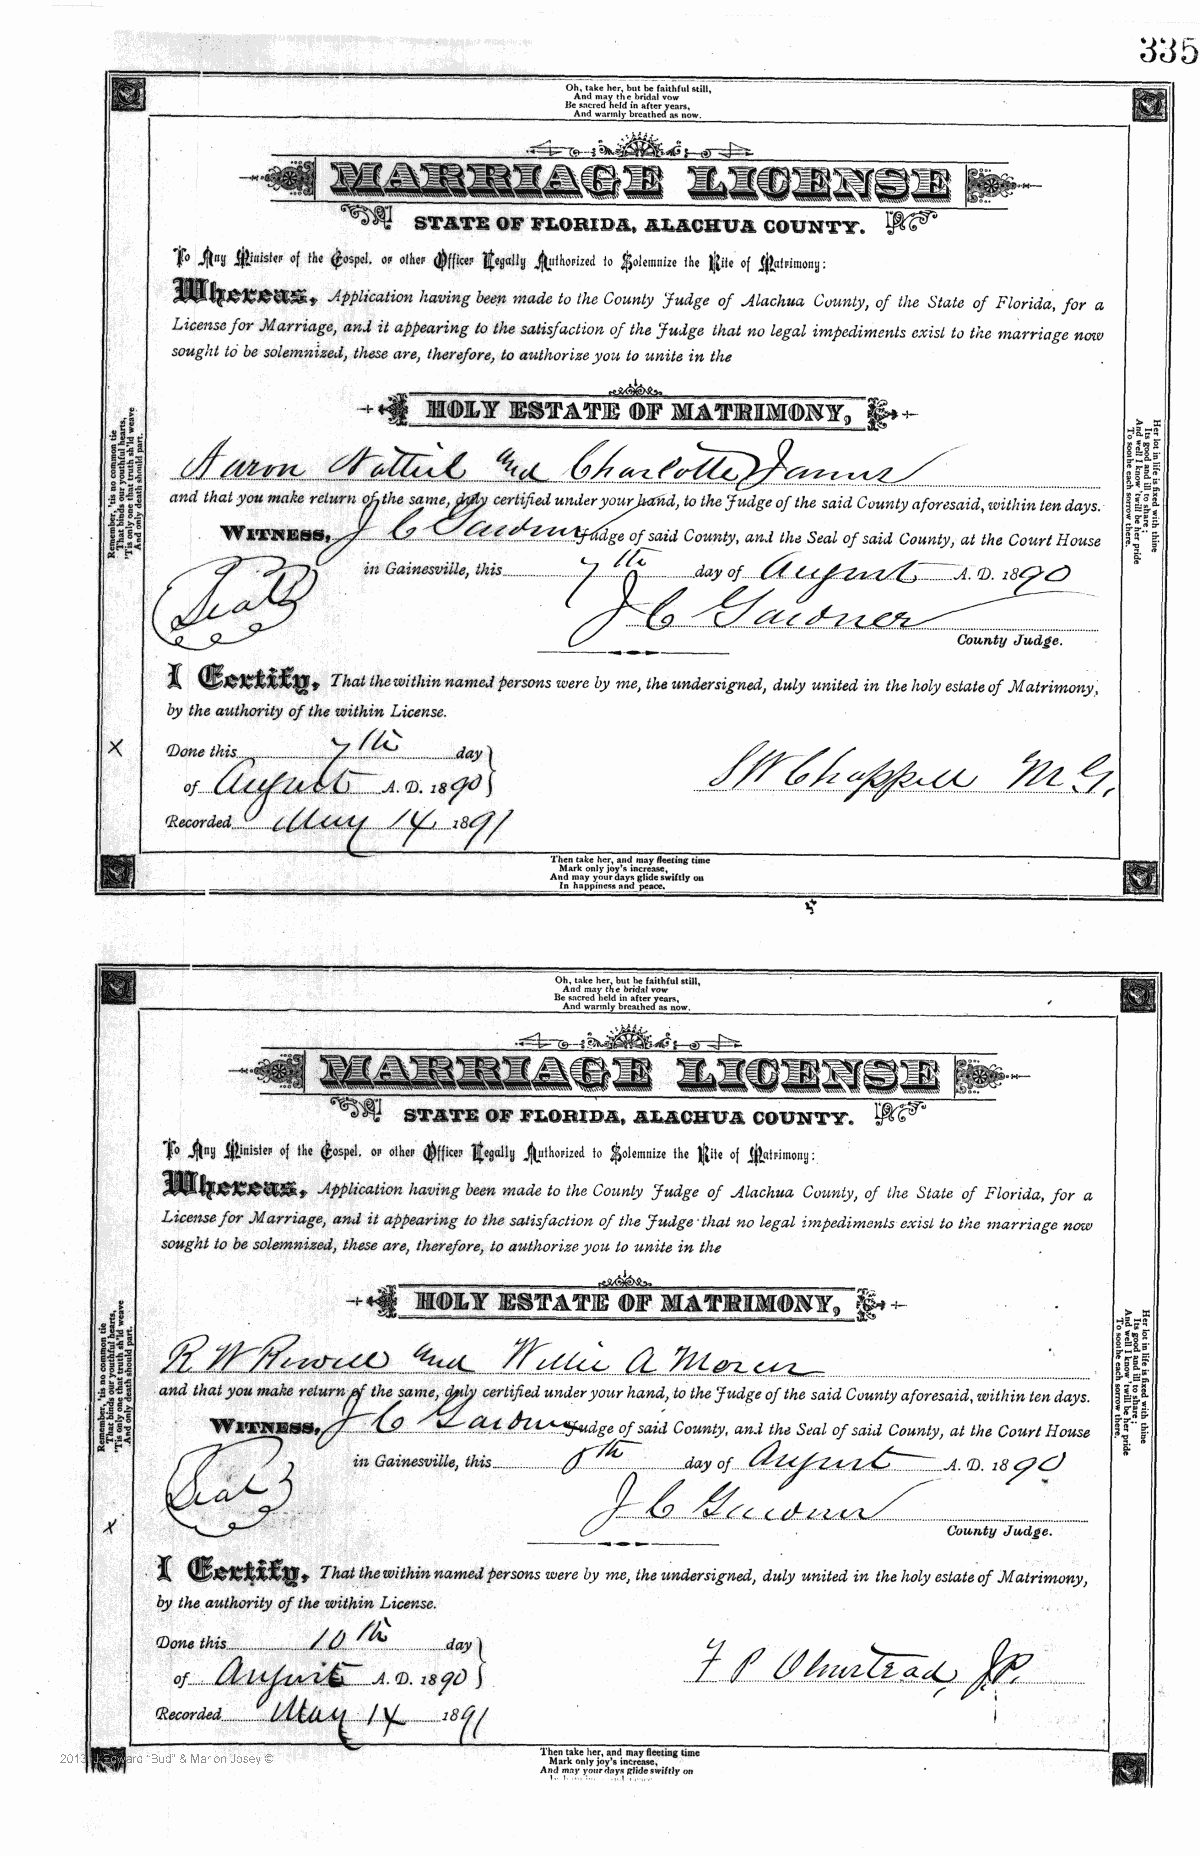 335
Oh, take her, but be faithful still,
And may the bridal vow
Be sacred held in after years,
And warmly breathed as now.
MARRIAGE LICENSE
STATE OF FLORIDA, ALACHUA COUNTY.
To Any Minister of the Gospel, or other Officer Legally Authorized to Solemnize the Rite of Matrimony:
Whereas, Application having been made to the County Judge of Alachua County, of the State of Florida, for a
License for Marriage, and it appearing to the satisfaction of the Judge that no legal impediments exist to the marriage now
sought to be solemnized, these are, therefore, to authorize you to unite in the
HOLY ESTATE OF MATRIMONY,
Aaron and Charlotte James
and that you make return of the same, duly certified under your hand, to the Judge of the said County aforesaid, within ten days.
WITNESS, J C Gardner Judge of said County, and the Seal of said County, at the Court House
in Gainesville, this 7th day of August A. D. 1890
Seal
J C Gardner
County Judge.
I Certify, That the within named persons were by me, the undersigned, duly united in the holy estate of Matrimony,
by the authority of the within License.
X
Done this 7th day
of August A. D. 1890
S W Chappell M G.
Recorded May 14 1891
Then take her, and may fleeting time
Mark only joy's increase,
And may your days glide swiftly on
In happiness and peace.
Remember, 'tis no common tie
That binds our youthful hearts,
'Tis only one that truth sh'ld weave
And only death should part.
Her lot in life is fixed with thine
Its good and ill to share;
And well I know 'twill be her pride
To soothe each sorrow there.
Oh, take her, but be faithful still,
And may the bridal vow
Be sacred held in after years,
And warmly breathed as now.
MARRIAGE LICENSE
STATE OF FLORIDA, ALACHUA COUNTY.
To Any Minister of the Gospel, or other Officer Legally Authorized to Solemnize the Rite of Matrimony:
Whereas, Application having been made to the County Judge of Alachua County, of the State of Florida, for a
License for Marriage, and it appearing to the satisfaction of the Judge that no legal impediments exist to the marriage now
sought to be solemnized, these are, therefore, to authorize you to unite in the
HOLY ESTATE OF MATRIMONY,
R W and Willie A
and that you make return of the same, duly certified under your hand, to the Judge of the said County aforesaid, within ten days.
WITNESS, J C Gardner Judge of said County, and the Seal of said County, at the Court House
in Gainesville, this 8th day of August A. D. 1890
Seal
J C Gardner
County Judge.
X
I Certify, That the within named persons were by me, the undersigned, duly united in the holy estate of Matrimony,
by the authority of the within License.
Done this 10th day
of August A. D. 1890
F P Olmstead, J.P.
Recorded May 14 1891
Then take her, and may fleeting time
Mark only joy's increase,
And may your days glide swiftly on
Remember, 'tis no common tie
That binds our youthful hearts,
'Tis only one that truth sh'ld weave
And only death should part.
Her lot in life is fixed with thine
Its good and ill to share;
And well I know 'twill be her pride
To soothe each sorrow there.
2013 J. Edward "Bud" & Marion Josey ©